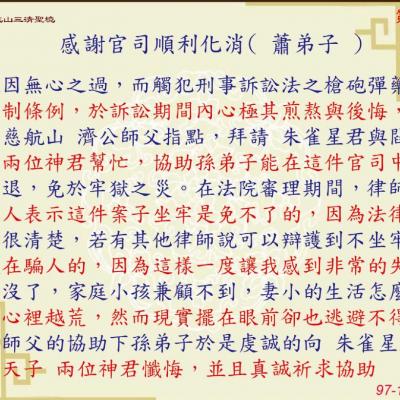 山三清聖境
感謝官司順利化消( 蕭弟子 )
因無心之過，而觸犯刑事訴訟法之槍砲彈藥
制條例，於訴訟期間內心極其煎熬與後悔，
慈航山 濟公師父指點，拜請 朱雀星君與閻
兩位神君幫忙，協助孫弟子能在這件官司中
退，免於牢獄之災。在法院審理期間，律師
人表示這件案子坐牢是免不了的，因為法律
很清楚，若有其他律師說可以辯護到不坐牢
在騙人的，因為這樣一度讓我感到非常的失
沒了，家庭小孩兼顧不到、妻小的生活怎麼
心裡越荒，然而現實擺在眼前卻也逃避不得
師父的協助下孫弟子於是虔誠的向 朱雀星
天子 兩位神君懺悔，並且真誠祈求協助
97-1